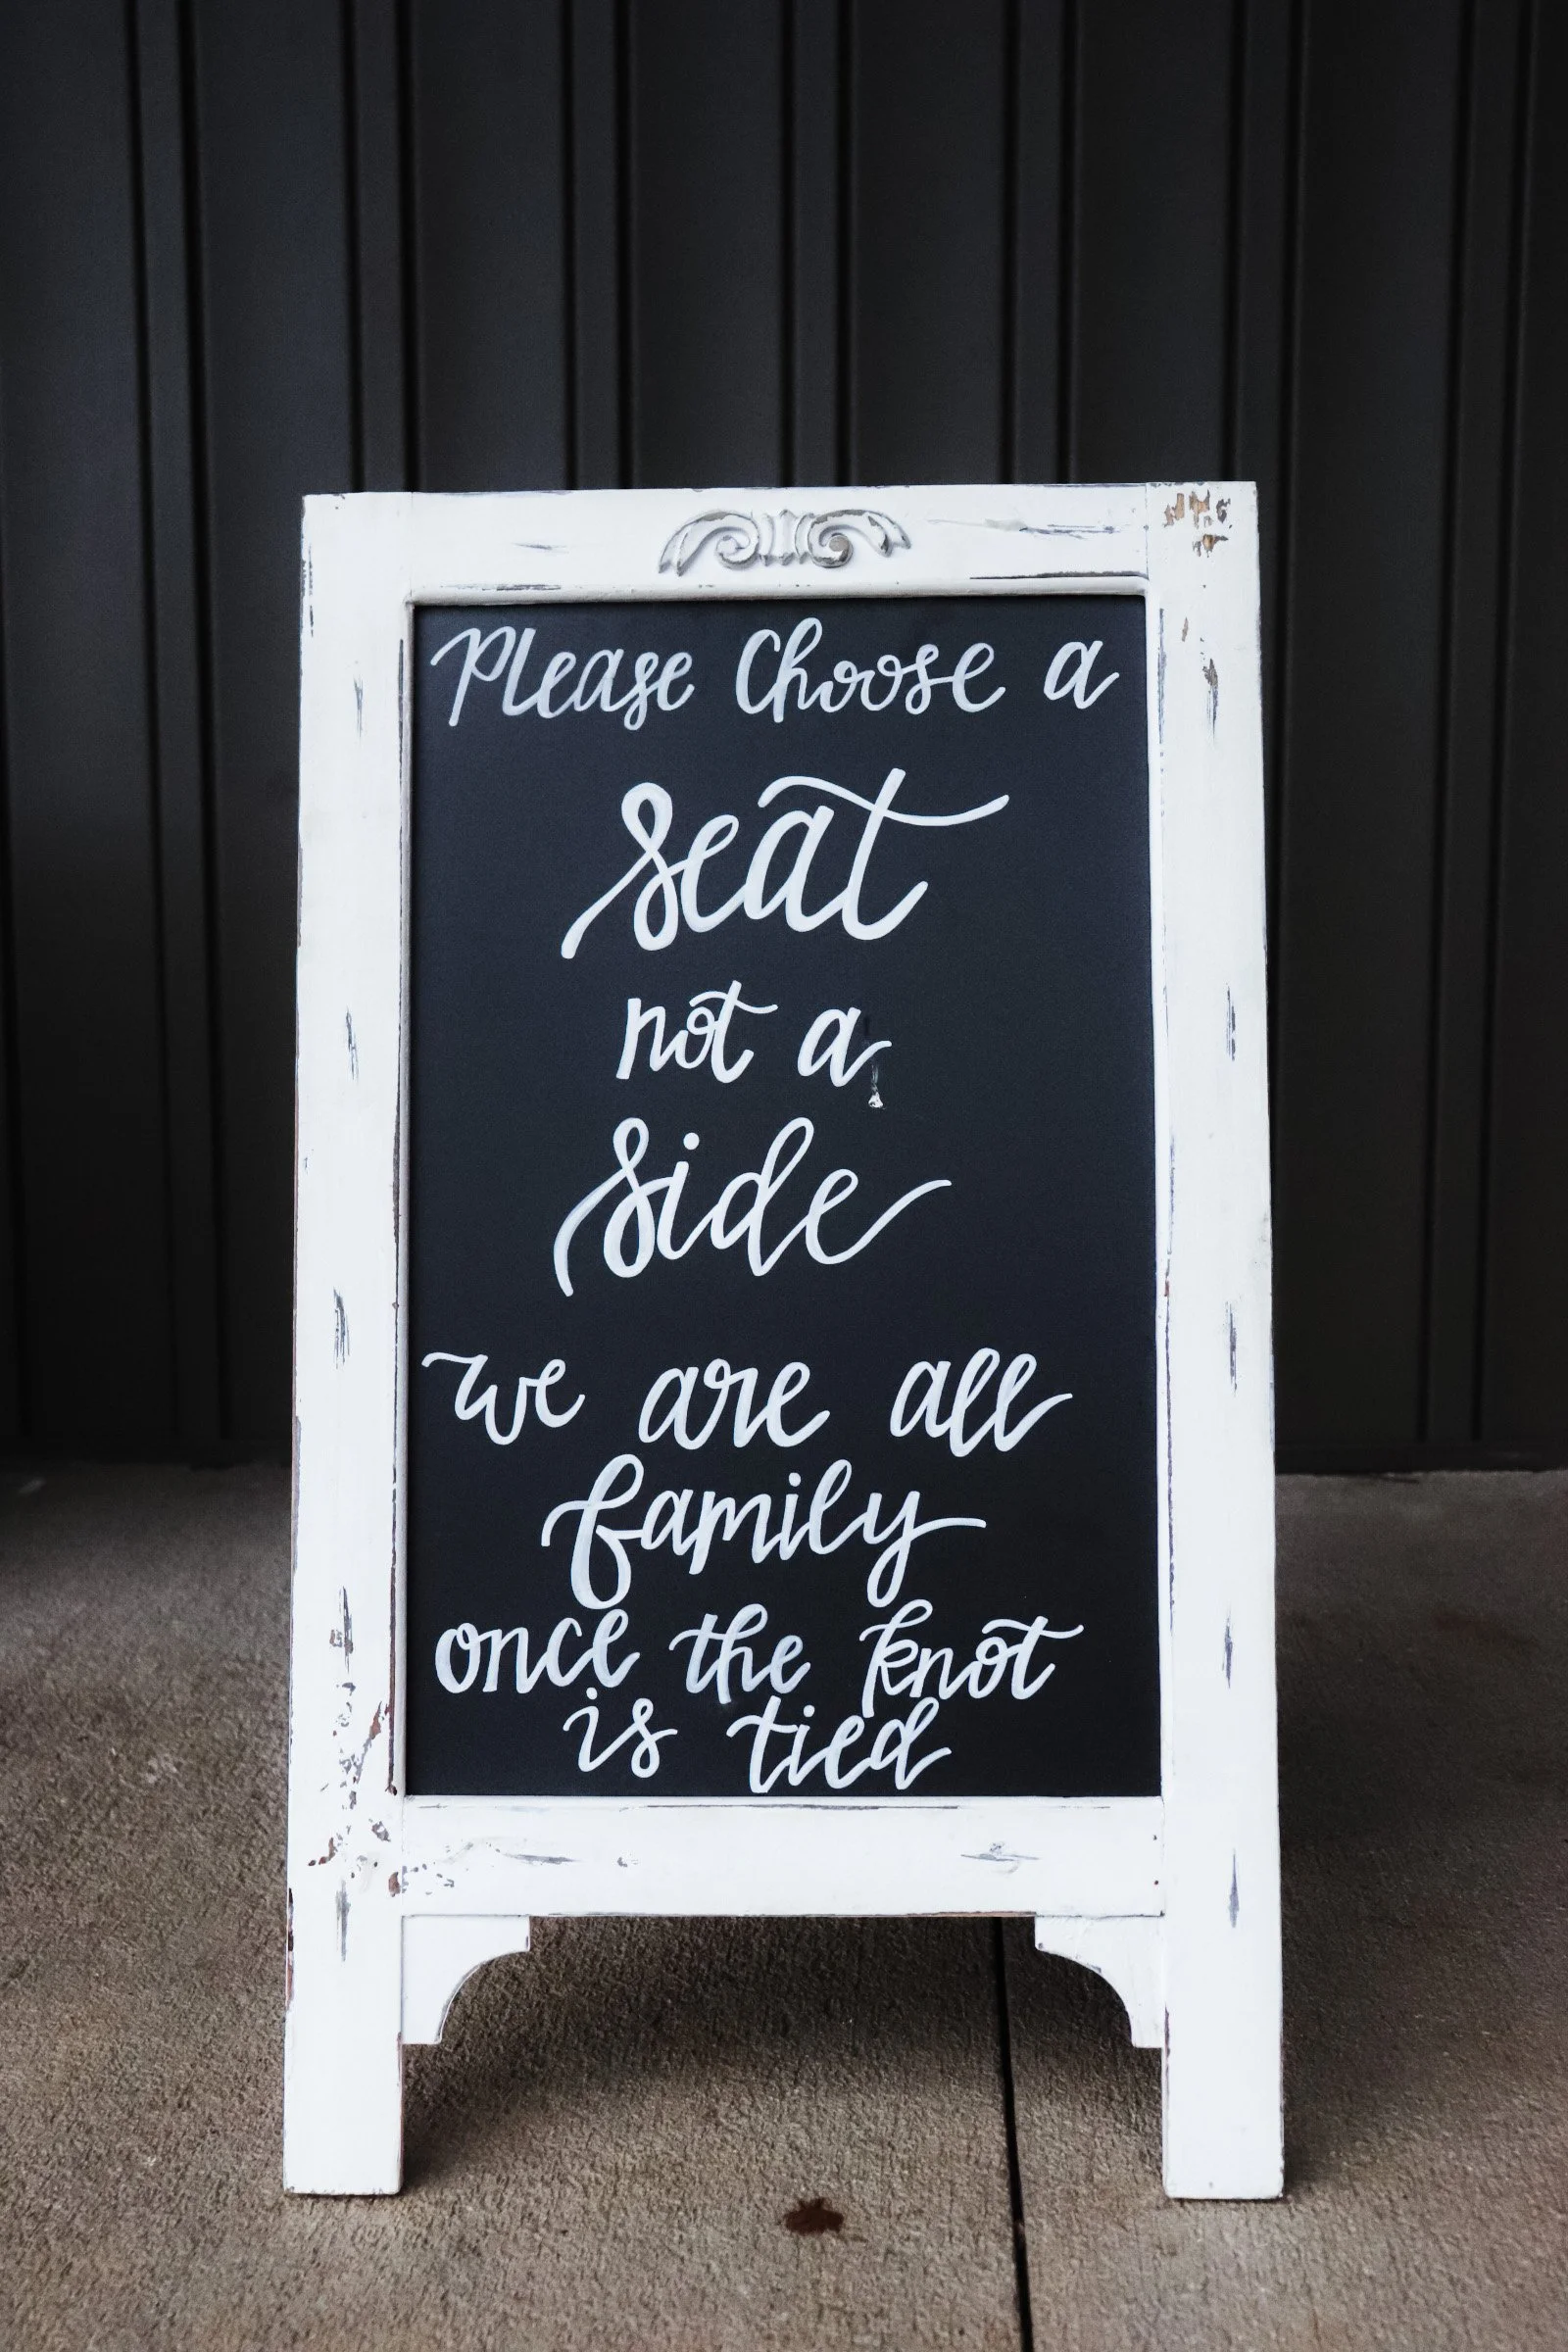 Please Choose a
seat
not a
side
we are all
family
once the knot
is tied